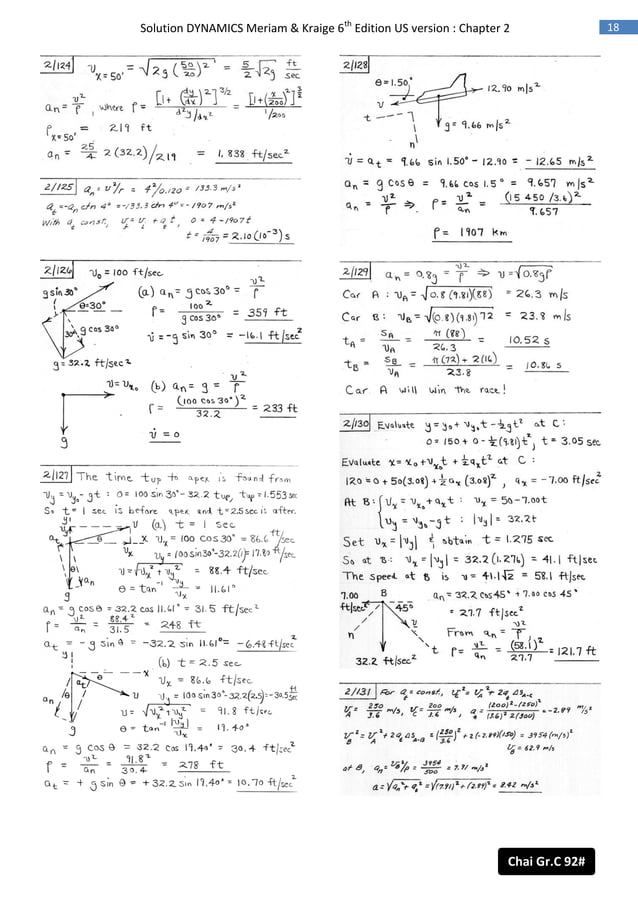 Solution DYNAMICS Meriam & Kraige 6th Edition US version : Chapter 2
18
2/124 v_{x=50'} = √(2g(50/20)²) = 5/2 √2g ft/sec
a_n = v²/ρ, where ρ = [1+(dy/dx)²]^{3/2} / (d²y/dx²) = [1+(x/200)²]^{3/2} / (1/200)
ρ_{x=50'} = 219 ft
a_n = 25/4 2(32.2)/219 = 1.838 ft/sec²
2/125 a_n = v²/r = 4²/0.120 = 133.3 m/s²
a_t = -a_n ctn 4° = -133.3 ctn 4° = -1907 m/s²
With a_t const., v_f = v_i + a_t t, 0 = 4 - 1907t
t = 4/1907 = 2.10(10⁻³) s
2/126 v₀ = 100 ft/sec
g sin 30°
θ=30°
30°
g cos 30°
g = 32.2 ft/sec²
(a) a_n = g cos 30° = v²/ρ
ρ = 100²/(g cos 30°) = 359 ft
v̇ = -g sin 30° = -16.1 ft/sec²
v = v_{x₀}
g
(b) a_n = g = v²/ρ
ρ = (100 cos 30°)²/32.2 = 233 ft
v̇ = 0
2/127 The time t_up to apex is found from
v_y = v_{y₀} - gt : 0 = 100 sin 30° - 32.2 t_up, t_up = 1.553 sec
So t = 1 sec is before apex and t = 2.5 sec is after.
y
v
x
a_t
θ
a_n
g
(a) t = 1 sec
v_x = 100 cos 30° = 86.6 ft/sec
v_y = 100 sin 30° - 32.2(1) = 17.80 ft/sec
v = √(v_x² + v_y²) = 88.4 ft/sec
θ = tan⁻¹ v_y/v_x = 11.61°
a_n = g cos θ = 32.2 cos 11.61° = 31.5 ft/sec²
ρ = v²/a_n = 88.4²/31.5 = 248 ft
a_t = -g sin θ = -32.2 sin 11.61° = -6.48 ft/sec²
y
x
θ
a_t
v
a_n
θ
g
(b) t = 2.5 sec
v_x = 86.6 ft/sec
v_y = 100 sin 30° - 32.2(2.5) = -30.5 ft/sec
v = √(v_x² + v_y²) = 91.8 ft/sec
θ = tan⁻¹ |v_y|/v_x = 19.40°
a_n = g cos θ = 32.2 cos 19.40° = 30.4 ft/sec²
ρ = v²/a_n = 91.8²/30.4 = 278 ft
a_t = + g sin θ = +32.2 sin 19.40° = 10.70 ft/sec²
2/128
θ = 1.50°
12.90 m/s²
v
t
g = 9.66 m/s²
n
v̇ = a_t = 9.66 sin 1.50° - 12.90 = -12.65 m/s²
a_n = g cos θ = 9.66 cos 1.5° = 9.657 m/s²
a_n = v²/ρ ⇒ ρ = v²/a_n = (15 450/3.6)²/9.657
ρ = 1907 km
2/129 a_n = 0.8g = v²/ρ ⇒ v = √0.8gρ
Car A : v_A = √0.8(9.81)(88) = 26.3 m/s
Car B : v_B = √(0.8)(9.81)72 = 23.8 m/s
t_A = s_A/v_A = π(88)/26.3 = 10.52 s
t_B = s_B/v_A = π(72)+2(16)/23.8 = 10.86 s
Car A will win the race!
2/130 Evaluate y = y₀ + v_{y₀}t - ½gt² at C:
0 = 150 + 0 - ½(9.81)t², t = 3.05 sec
Evaluate x = x₀ + v_{x₀}t + ½a_x t² at C :
120 = 0 + 50(3.08) + ½a_x(3.08)², a_x = -7.00 ft/sec²
At B : { v_x = v_{x₀} + a_x t : v_x = 50 - 7.00t
v_y = v_{y₀} - gt : |v_y| = 32.2t
Set v_x = |v_y| & obtain t = 1.275 sec
So at B : v_x = |v_y| = 32.2(1.276) = 41.1 ft/sec
The speed at B is v = 41.1√2 = 58.1 ft/sec
7.00 ft/sec²
B
45°
v
n
t
32.2 ft/sec²
a_n = 32.2 cos 45° + 7.00 cos 45
= 27.7 ft/sec²
From a_n = v²/ρ,
ρ = v²/a_n = (58.1)²/27.7 = 121.7 ft
2/131 For a_t = const., v_C² = v_A² + 2a_t Δs_{A-C}
v_A = 250/3.6 m/s, v_C = 200/3.6 m/s, a_t = (200)²-(250)²/(3.6)² 2(300) = -2.89 m/s²
v_B² = v_A² + 2a_t Δs_{A-B} = (250/3.6)² + 2(-2.89)(150) = 3954 (m/s)²
v_B = 62.9 m/s
at B, a_n = v_B²/ρ = 3954/500 = 7.91 m/s²
a = √(a_n² + a_t²) = √((7.91)² + (2.89)²) = 8.42 m/s²
Chai Gr.C 92#